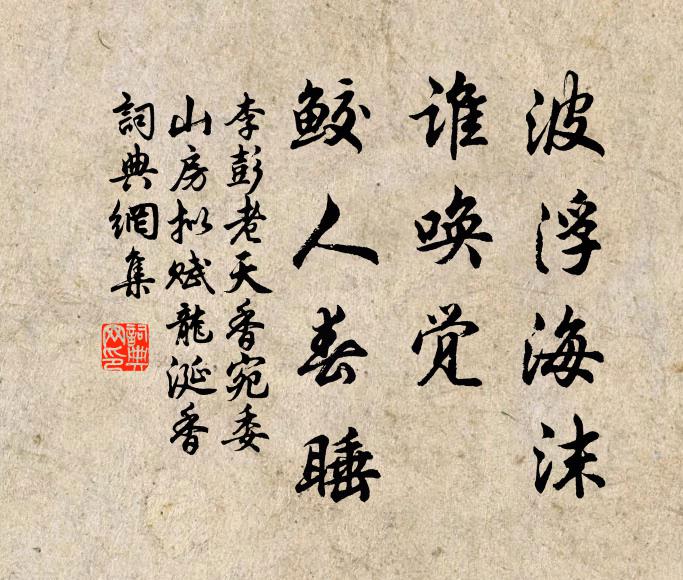 波浮海沫
谁唤觉
鲛人春睡
李彭老天香宛委
山房拟赋龍涎香
詞典網集
詞典
网印